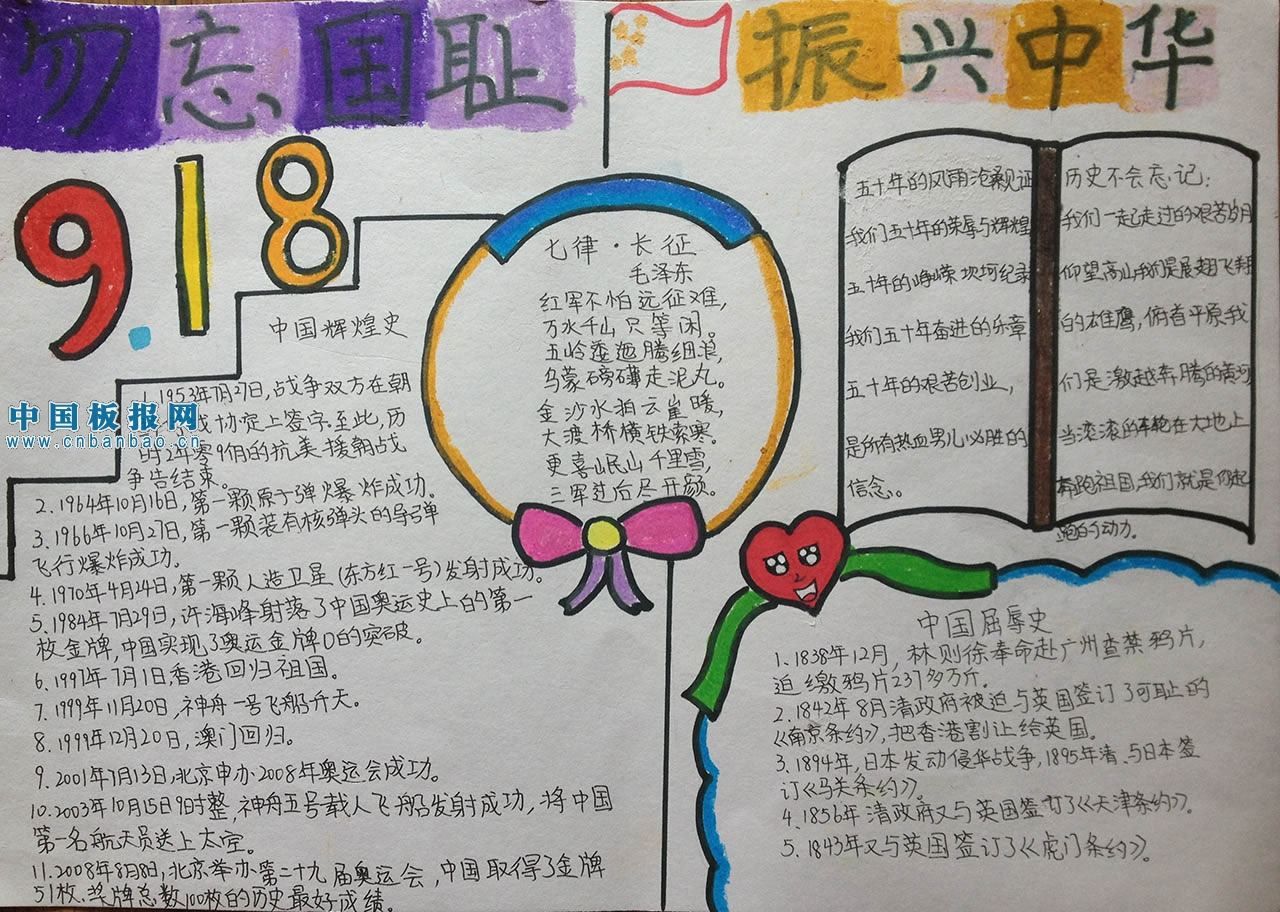 勿忘国耻
振兴中华
9.18
中国辉煌史
1.1953年7月27日,战争双方在朝
战协定上签字.至此,历
时2年零9个月的抗美援朝战
争告结束。
2.1964年10月16日,第一颗原子弹爆炸成功。
3.1966年10月27日,第一颗装有核弹头的导弹
飞行爆炸成功。
4.1970年4月24日,第一颗人造卫星(东方红一号)发射成功。
5.1984年7月29日,许海峰射落了中国奥运史上的第一
枚金牌,中国实现了奥运金牌0的突破。
6.1997年7月1日,香港回归祖国。
7.1999年11月20日,神舟一号飞船升天。
8.1999年12月20日,澳门回归。
9.2001年7月13日,北京申办2008年奥运会成功。
10.2003年10月15日9时整,神舟五号载人飞船发射成功,将中国
第一名航天员送上太空。
11.2008年8月8日,北京举办第二十九届奥运会,中国取得了金牌
51枚.奖牌总数100枚的历史最好成绩。
中国板报网
www.cnbanbao.cn
七律·长征
毛泽东
红军不怕远征难,
万水千山只等闲。
五岭逶迤腾细浪,
乌蒙磅礴走泥丸。
金沙水拍云崖暖,
大渡桥横铁索寒。
更喜岷山千里雪,
三军过后尽开颜。
五十年的风雨沧桑见证
我们五十年的荣辱与辉煌
五十年的峥嵘坎坷纪录
我们五十年奋进的乐章
五十年的艰苦创业,
是所有热血男儿必胜的
信念。
历史不会忘记:
我们一起走过的艰苦岁月
仰望高山我们是展翅飞翔
的雄鹰,俯首平原我
们是激越奔腾的黄河
当滚滚的车轮在大地上
奔跑祖国,我们就是你起
跑的动力。
中国屈辱史
1.1838年12月,林则徐奉命赴广州查禁鸦片,
迫缴鸦片237多万斤.
2.1842年8月清政府被迫与英国签订了可耻的
《南京条约》,把香港割让给英国。
3.1894年,日本发动侵华战争,1895年清与日本签
订《马关条约》。
4.1856年清政府又与英国签订了《天津条约》。
5.1843年又与英国签订了《虎门条约》。